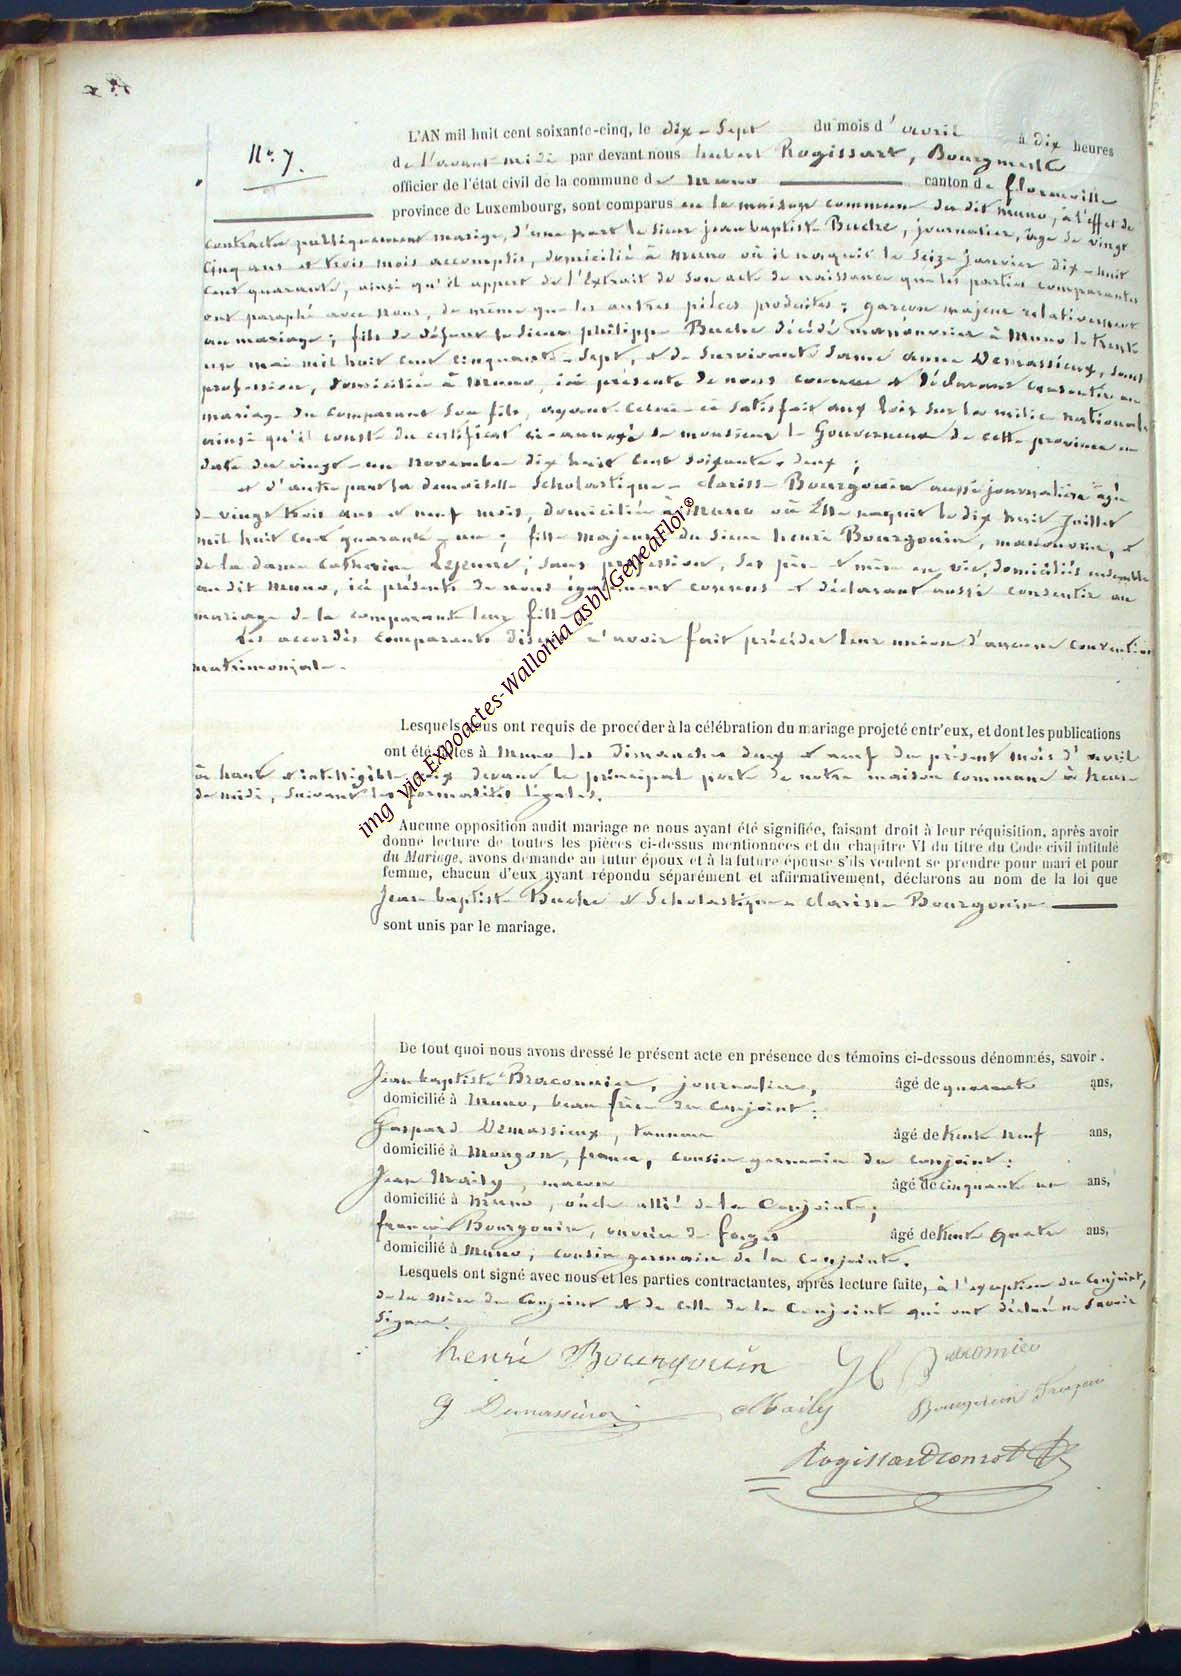 N°. 7.
L'AN mil huit cent soixante-cinq, le dix-Sept du mois d'avril à dix heures
de l'avant midi par devant nous hubert Rogissart, Bourgmestre
officier de l'état civil de la commune de Muno canton de florenville
province de Luxembourg, sont comparus en la maison commune du dit Muno, à l'effet de
contracter publiquement mariage, d'une part le sieur jean baptiste Buche, journalier, âgé de vingt
cinq ans et trois mois accomplis, domicilié à Muno où il naquit le Seize janvier dix-huit
cent quarante, ainsi qu'il appert de l'Extrait de son acte de naissance que les parties comparantes
ont paraphé avec nous, de même que les autres pièces produites; garçon majeur relativement
au mariage; fils de défunt le sieur philippe Buche décédé manouvrier à Muno le trente
un mai mil huit cent cinquante-Sept, et de Survivante dame anne Demassieux, sans
profession, domiciliée à Muno, ici présente de nous connue et déclarant consentir au
mariage du comparant son fils, ayant celui-ci satisfait aux lois sur la milice nationale
ainsi qu'il conste du certificat ci-annexé de monsieur le Gouverneur de cette province en
date du vingt-un novembre dix huit cent soixante-deux;
et d'autre part la demoiselle Scholastique-clarisse Bourgouin aussi journalière âgée
de vingt trois ans et neuf mois, domiciliée à Muno où Elle naquit le dix huit juillet
mil huit cent quarante-un; fille majeure du sieur henri Bourgouin, manouvrier, et
de la dame catherine Lejeune, sans profession, Ses père et mère en vie, domiciliés ensemble
au dit Muno, ici présents de nous également connus et déclarant aussi consentir au
mariage de la comparante leur fille
Les accordés comparants disent n'avoir fait précéder leur union d'aucune convention
matrimoniale.
Lesquels nous ont requis de procéder à la célébration du mariage projeté entr'eux, et dont les publications
ont été faites à Muno les Dimanches deux et neuf du présent mois d'avril
à haute et intelligible voix devant la principale porte de notre maison commune à heure
de midi, suivant les formalités légales.
Aucune opposition audit mariage ne nous ayant été signifiée, faisant droit à leur réquisition, après avoir
donné lecture de toutes les pièces ci-dessus mentionnées et du chapitre VI du titre du Code civil intitulé
du Mariage, avons demandé au futur époux et à la future épouse s'ils veulent se prendre pour mari et pour
femme, chacun d'eux ayant répondu séparément et affirmativement, déclarons au nom de la loi que
Jean baptiste Buche et Scholastique clarisse Bourgouin
sont unis par le mariage.
De tout quoi nous avons dressé le présent acte en présence des témoins ci-dessous dénommés, savoir.
Jean baptiste Braconnier, journalier, âgé de quarante ans,
domicilié à Muno, beau frère du conjoint;
Gaspard Demassieux, tanneur âgé de trente neuf ans,
domicilié à Mouzon, france, cousin germain du conjoint;
Jean Maily, macon âgé de cinquante un ans,
domicilié à Muno, oncle allié de la Conjointe;
françois Bourgouin, ouvrier de forges âgé de trente quatre ans,
domicilié à Muno, cousin germain de la conjointe.
Lesquels ont signé avec nous et les parties contractantes, après lecture faite, à l'exception du conjoint,
de la mère du Conjoint et de celle de la Conjointe qui ont déclaré ne Savoir
Signer.
henri Bourgouin
G Demassieux Maily Bourgouin François
Rogissart
img via Expoactes-Wallonia asbl/GeneaFlor®